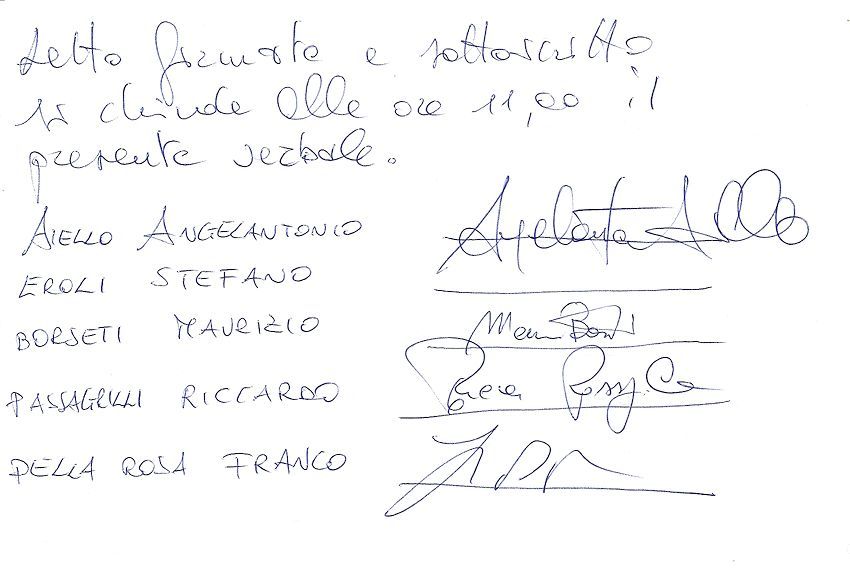 Letto firmato e sottoscritto
si chiude alle ore 11,00 il
presente verbale.
AIELLO ANGELANTONIO
EROLI STEFANO
BORSETI MAURIZIO
PASSAGRILLI RICCARDO
DELLA ROSA FRANCO